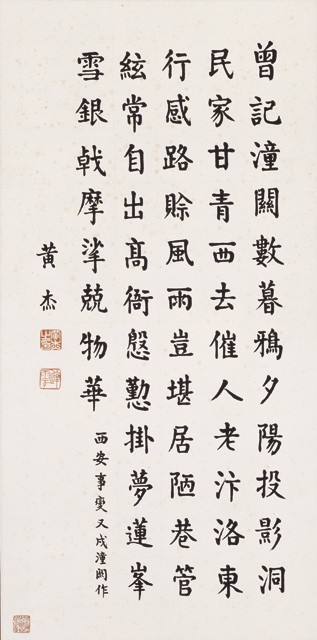 曾記潼關數暮鴉夕陽投影洞
民家甘青西去催人老汴洛東
行感路賒風雨豈堪居陋巷管
絃常自出髙衙慇懃掛夢蓮峯
雪銀戟摩挲兢物華
西安事變又戍潼関作
黃杰